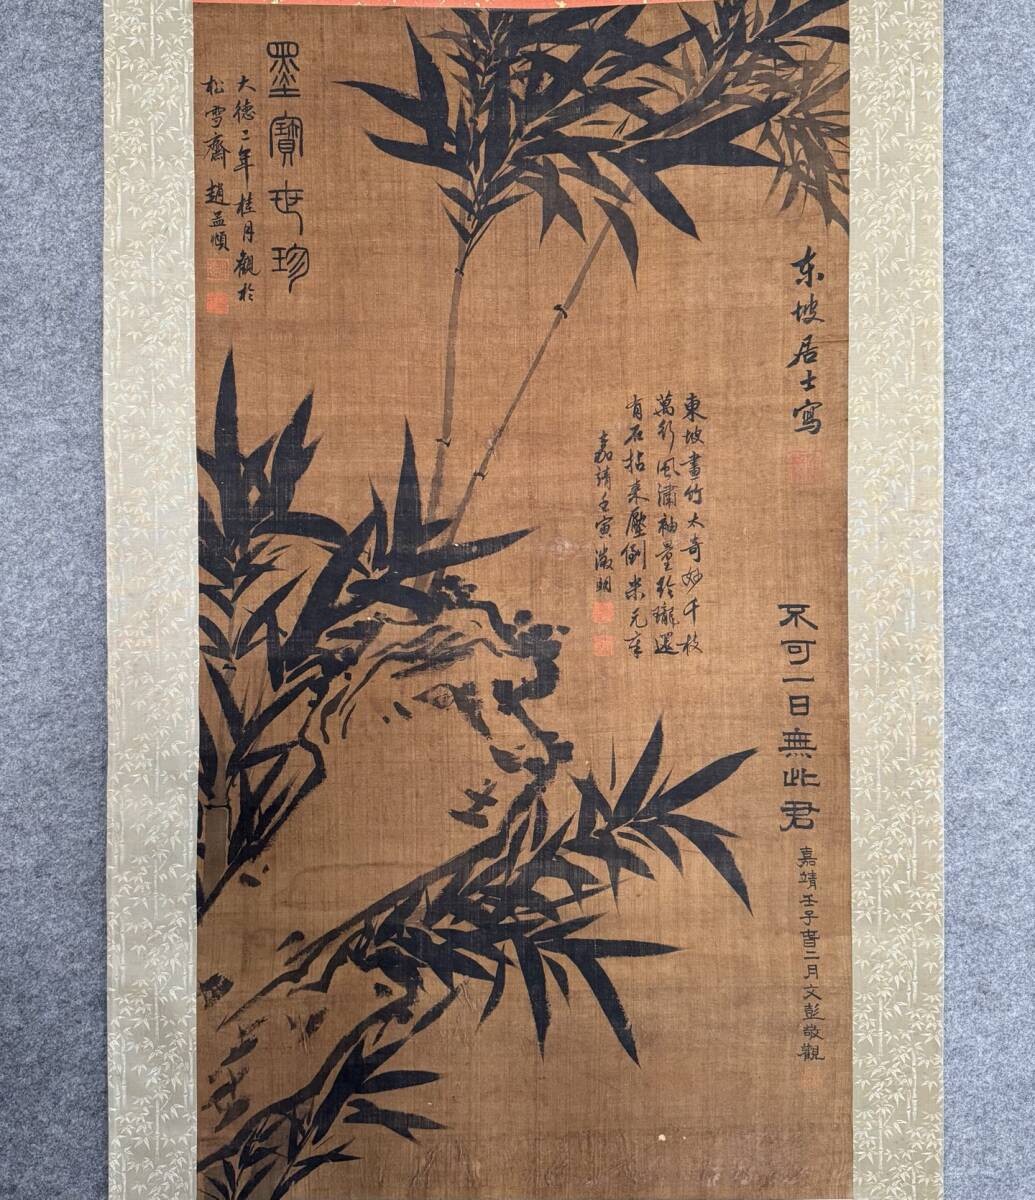 东坡居士寫
不可一日無此君
嘉靖壬子春二月文彭敬觀
東坡畫竹太奇妙千枝
萬行風瀟袖量玲瓏還
有石拈来壓倒米元章
嘉靖壬寅徵明
墨寶世珍
大德二年桂月觀於
松雪齋趙孟頫